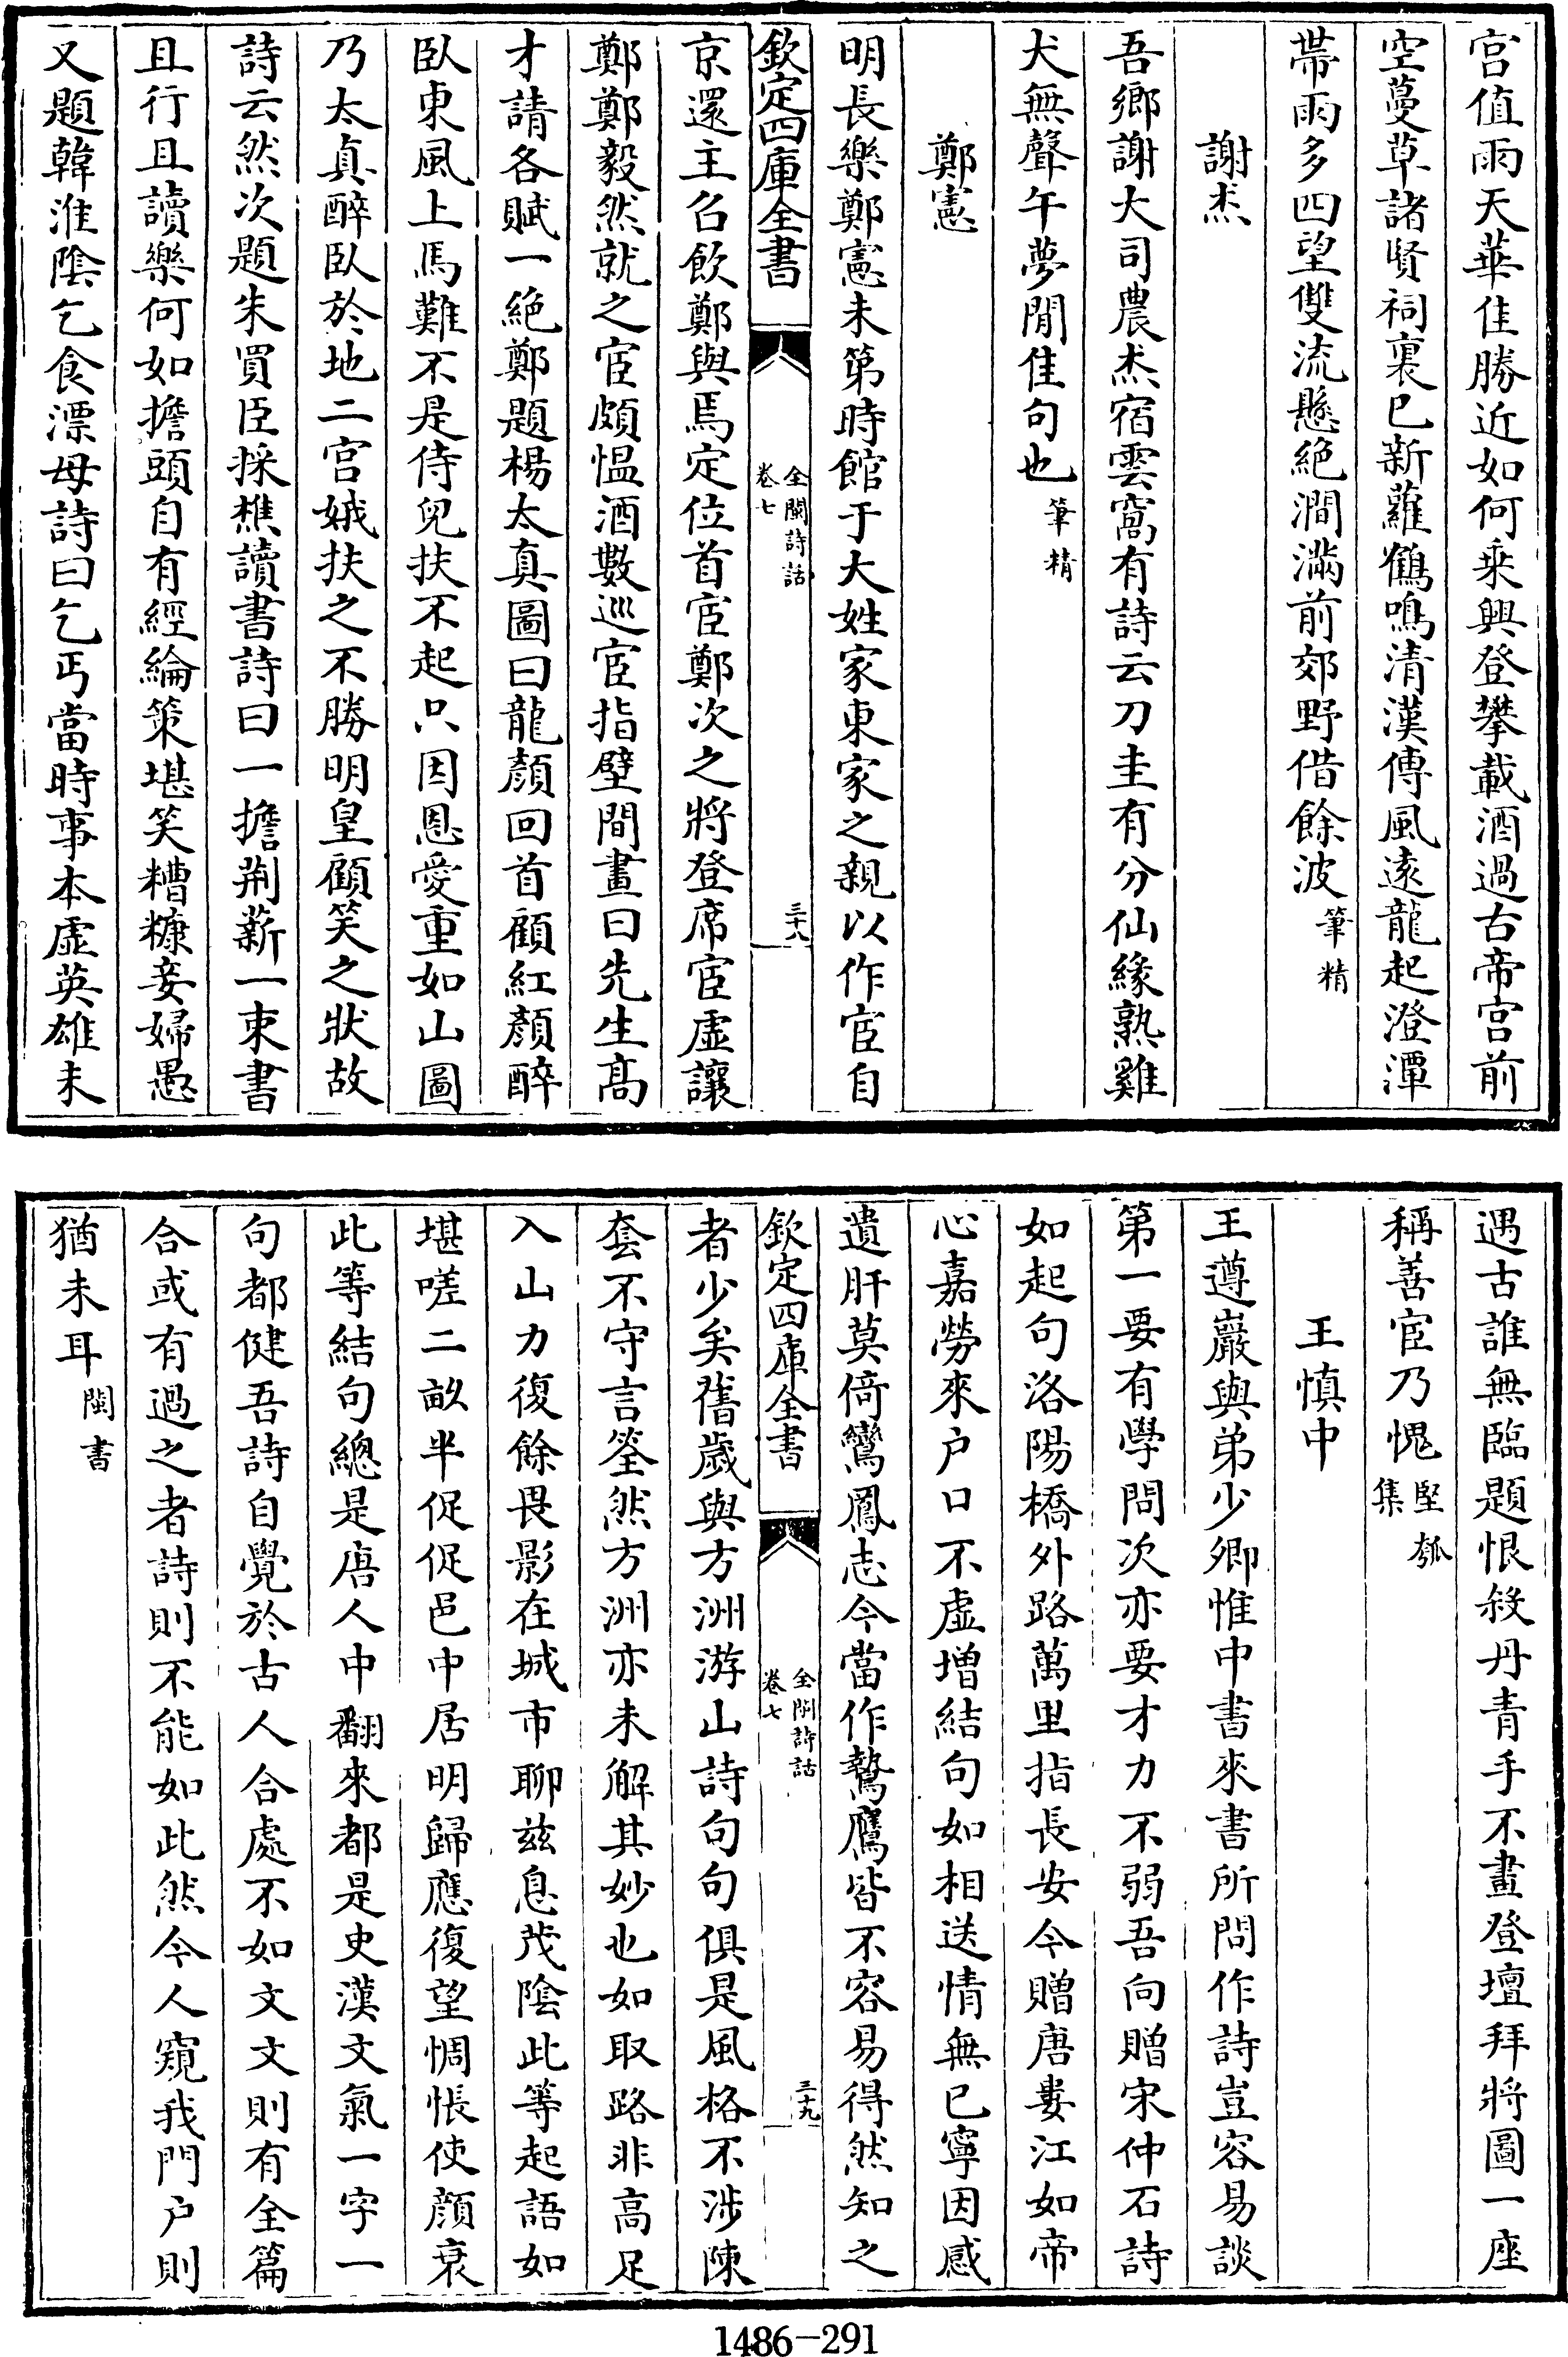 宫值雨天華佳勝近如何乗興登攀載酒過古帝宫前
空蔓草諸賢祠裏已新蘿鶴鳴清漢傳風逺龍起澄潭
帶雨多四望雙流懸絶澗滿前郊野借餘波筆精
謝杰
吾鄉謝大司農杰宿雲窩有詩云刀圭有分仙緣熟雞
犬無聲午夢閒佳句也筆精
鄭憲
明長樂鄭憲未第時館于大姓家東家之親以作宦自
欽定四庫全書
全閩詩話
卷七
三十八
京還主召飲鄭與焉定位首宦鄭次之將登席宦虚讓
鄭鄭毅然就之宦頗愠酒數廵宦指壁間畫曰先生髙
才請各賦一絶鄭題楊太真圖曰龍顔回首顧紅顔醉
臥東風上馬難不是侍兒扶不起只因恩愛重如山圖
乃太真醉臥於地二宫娥扶之不勝明皇顧笑之狀故
詩云然次題朱買臣採樵讀書詩曰一擔荆薪一束書
且行且讀樂何如擔頭自有經綸策堪笑糟糠妾婦愚
又題韓淮隂乞食漂母詩曰乞丐當時事本虚英雄未
遇古誰無臨題恨殺丹青手不畫登壇拜將圖一座
稱善宦乃愧堅瓠集
王慎中
王遵巖與弟少卿惟中書來書所問作詩豈容易談
第一要有學問次亦要才力不弱吾向贈宋仲石詩
如起句洛陽橋外路萬里指長安今贈唐婁江如帝
心嘉勞來户口不虚增結句如相送情無已寧因感
遺肝莫倚鸞鳳志今當作鷙鷹皆不容易得然知之
欽定四庫全書
全閩詩話
卷七
三十九
者少矣舊歲與方洲游山詩句句俱是風格不涉陳
套不守言筌然方洲亦未解其妙也如取路非高足
入山力復餘畏影在城市聊兹息茂陰此等起語如
堪嗟二畝半促促邑中居明歸應復望惆悵使顔衰
此等結句總是唐人中翻來都是史漢文氣一字一
句都健吾詩自覺於古人合處不如文文則有全篇
合或有過之者詩則不能如此然今人窺我門户則
猶未耳閩書
1486-291